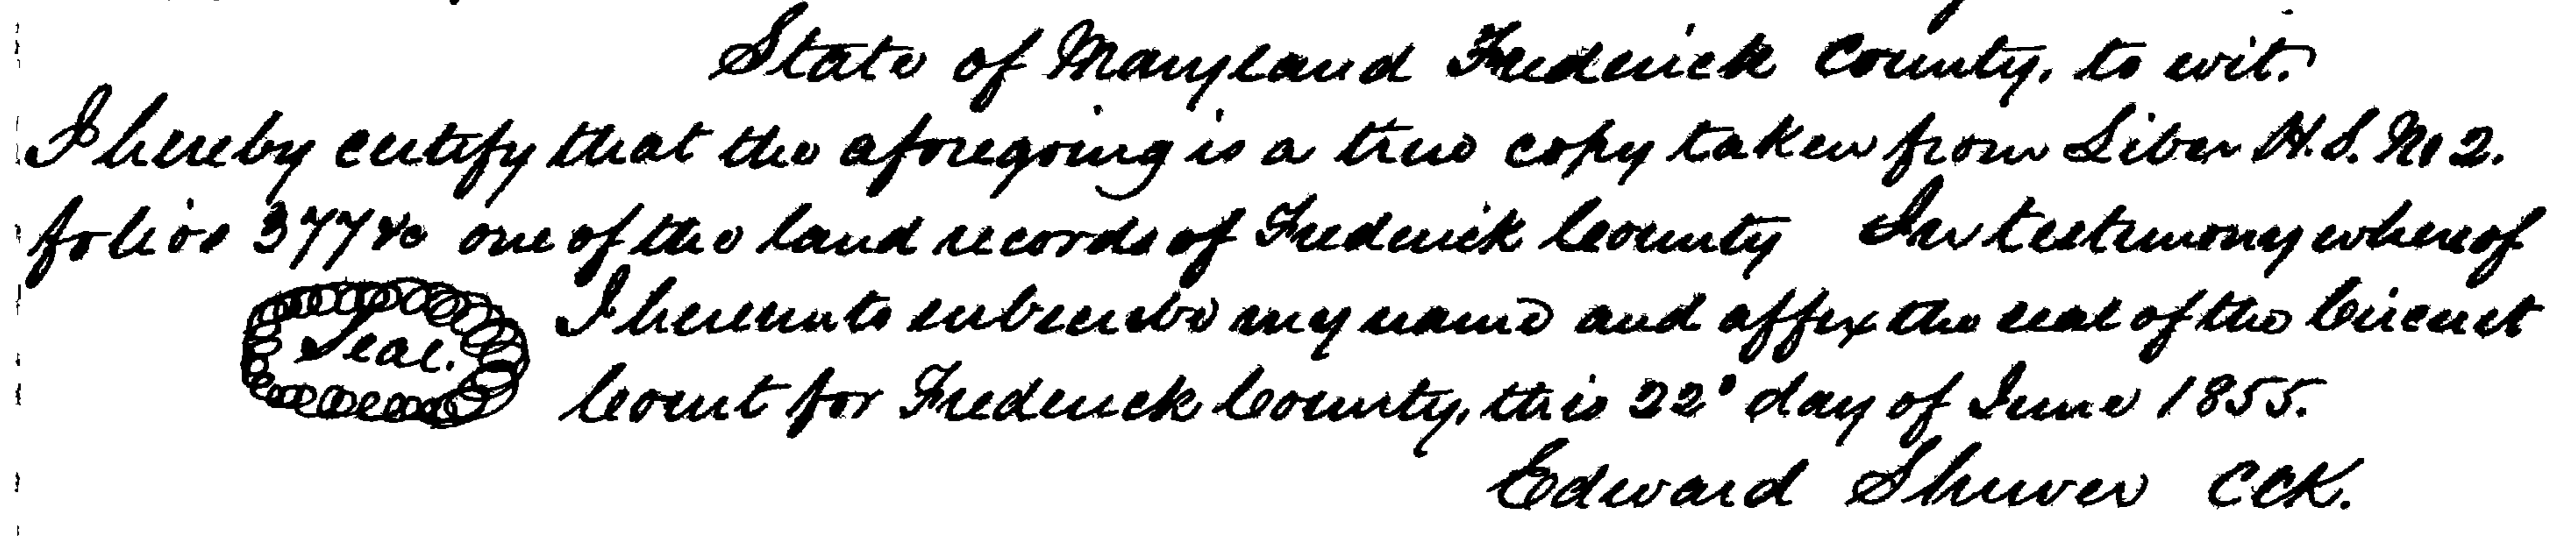 State of Maryland Frederick County, to wit.
I hereby certify that the aforegoing is a true copy taken from Liber H.S. No 2.
folios 377 &c one of the land records of Frederick County In testimony whereof
I hereunto subscribe my name and affix the seal of the Circuit
Seal.
Court for Frederick County, this 22d day of June 1855.
Edward Shriver CCK.